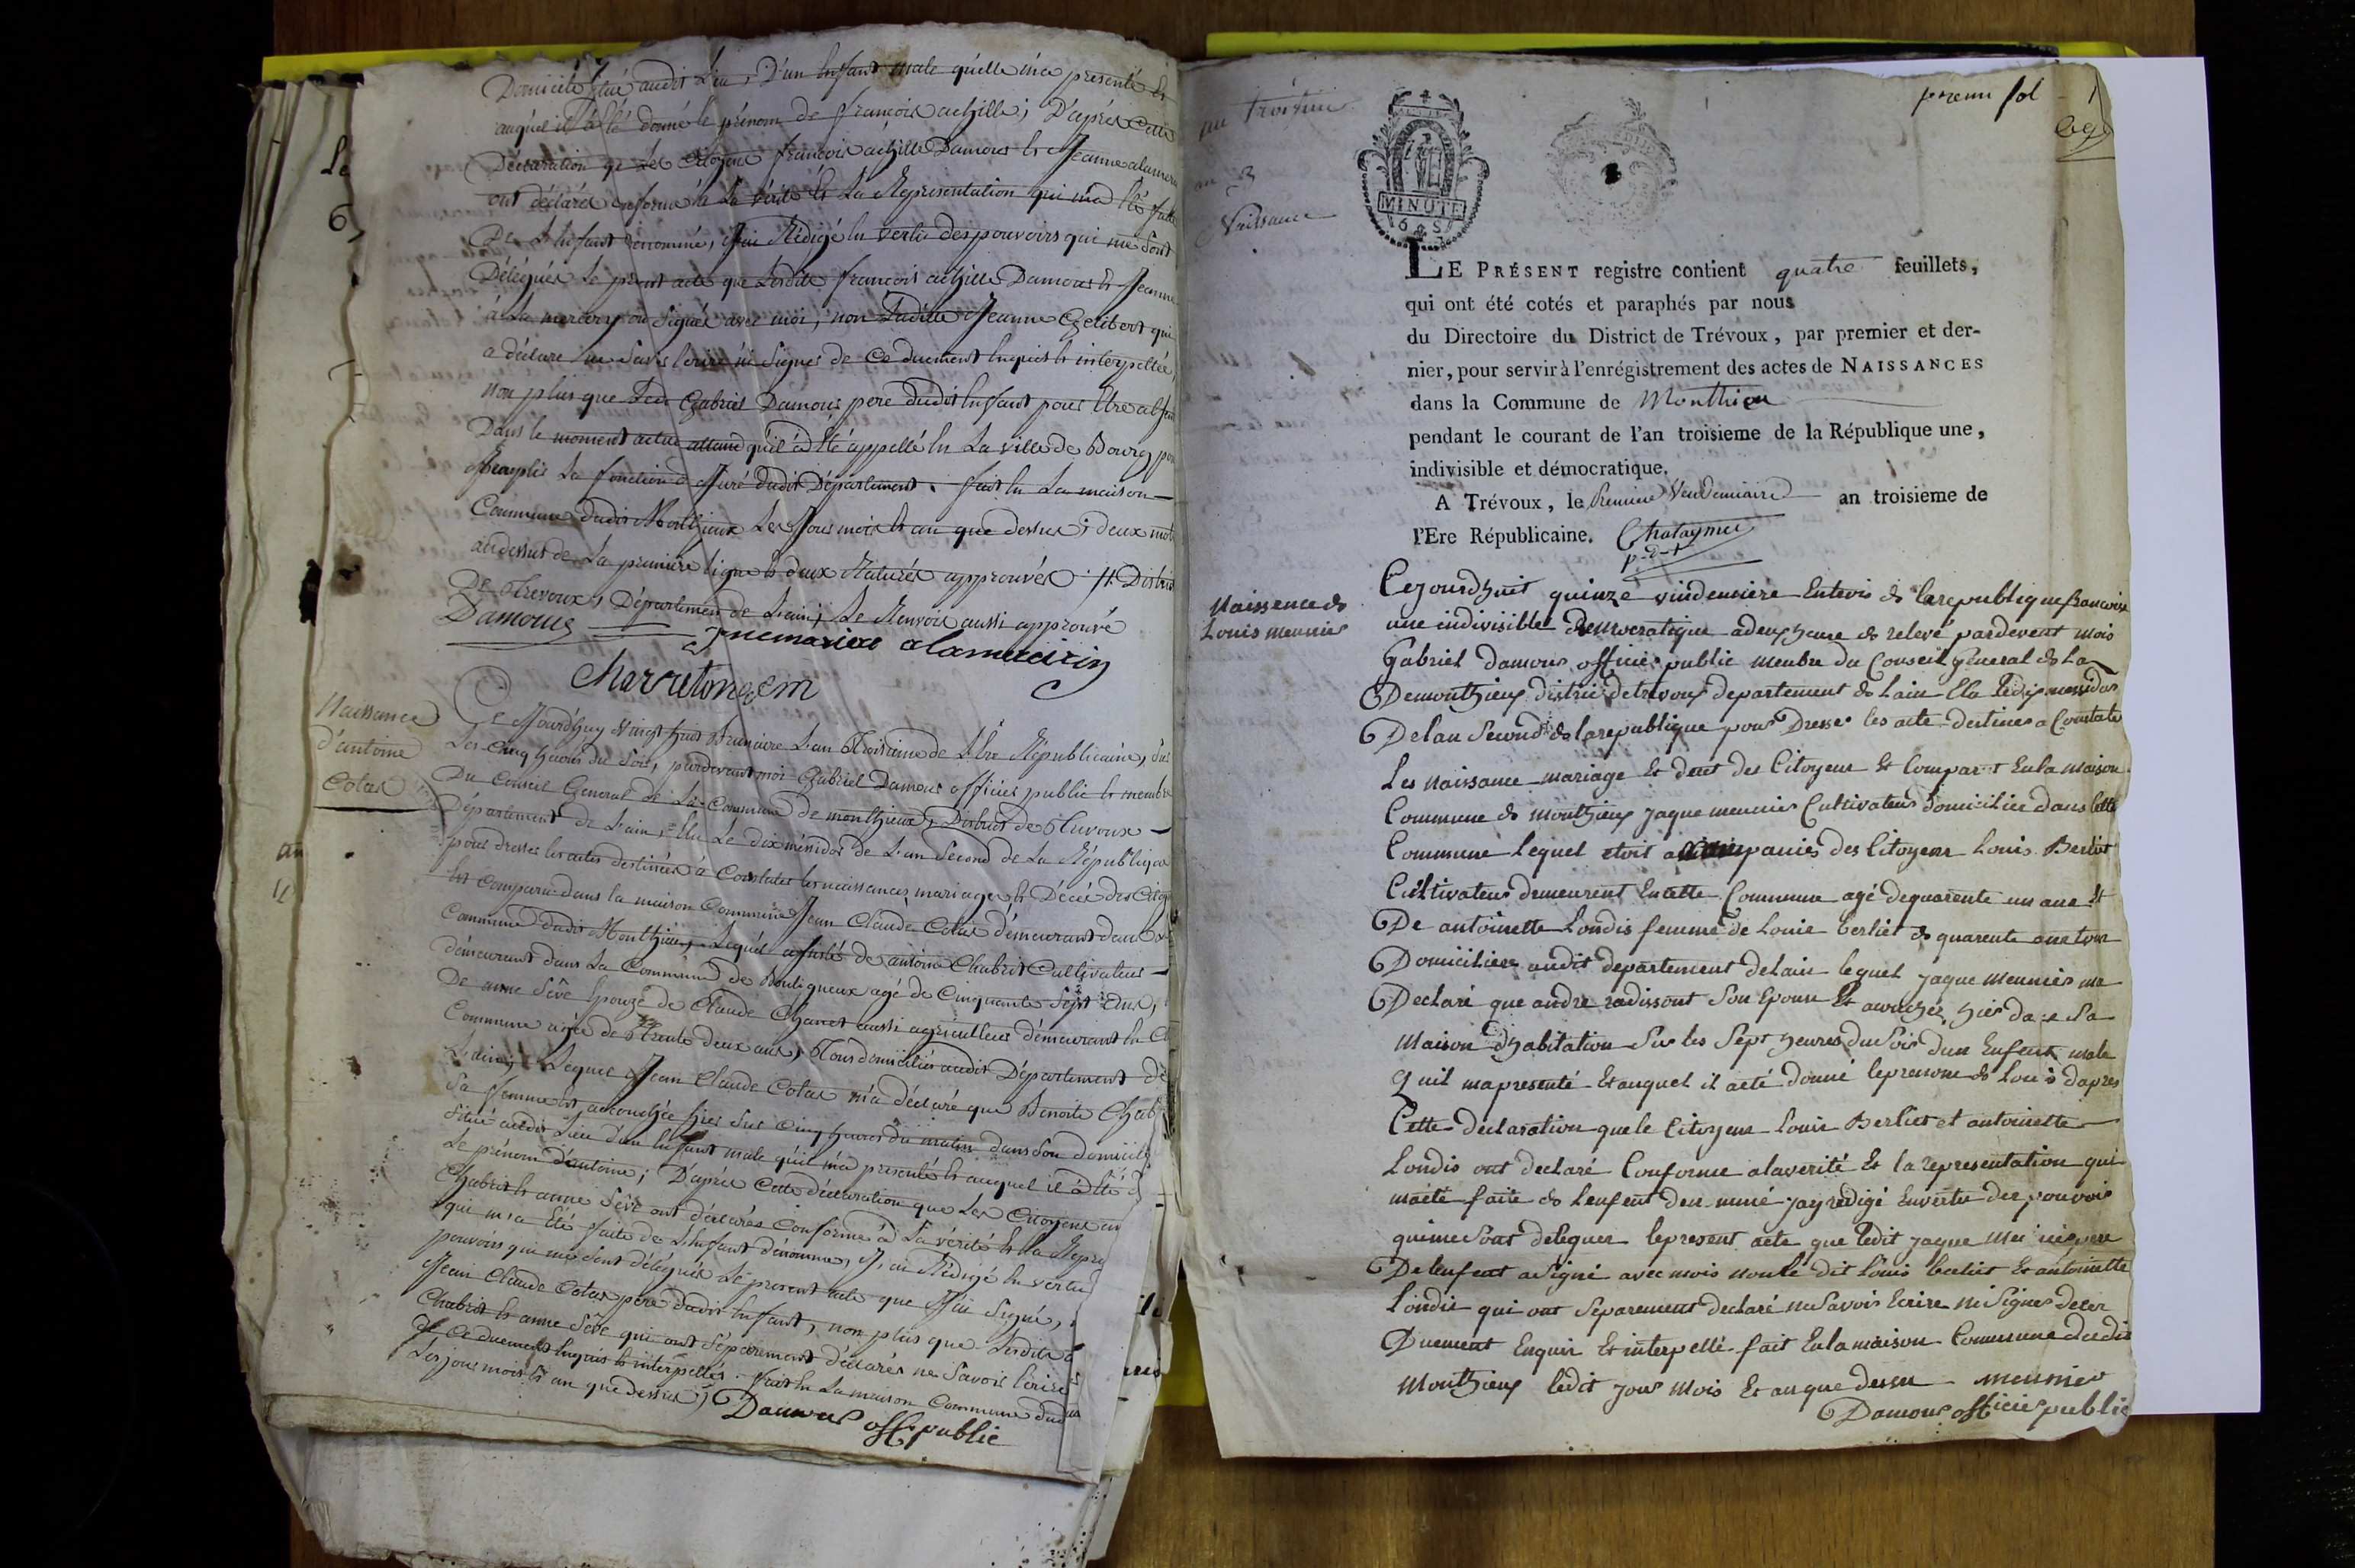 Domicile situé audit Lieu, D'un Enfant male qu'elle m'a presenté et
auquel il a été donné le prénom de françois achille; D'après cette
Declaration que Les Citoyens françois achille Damour et Jeanne alamerc
ont déclaré conforme à La vérité et La Représentation qui m'a été faitte
De L'Enfant denommé, J'ai Rédigé En vertu des pouvoirs qui me sont
Délégués Le présent acte que Lesdits françois achille Damour et Jeanne
a La mercery ont signés avec moi, non Ladite Jeanne Gelibert qui
a déclaré ne savoir Ecrire ni signer de Ce duement Enquise et interpellée,
non plus que Ledit Gabriel Damour pere dudit Enfant pour Etre absent
Dans le moment actuel attendu qu'il a Eté appellé En La ville de Bourg pour
Remplir La fonction de Juré dudit Département. fait En La maison
Commune dudit Monthieux Les Jour mois et an que dessus; deux mots
au dessus de La premiere ligne et deux Raturés approuvés // District
De Trevoux, Département de L'ain; Le Renvoi aussi approuvé
Damour
alamercery
Charreton
Naissance
d'antoine
Colas
Ce Jourd'huy vingt huit Brumaire L'an Troisieme de L'Ere Républicaine, sur
Les Cinq heures du Soir, pardevant moi Gabriel Damour officier public et membre
Du Conseil General de La Commune de monthieux, District de Trevoux
Département de L'ain, Elu Le dix méssidor de L'an Second de La République
pour dresser les actes destinés à Constater les naissances, mariages et Décès des Citoy
Est Comparu dans la maison Commune Jean Claude Colas démeurant dans
Commune dudit Monthieux, Lequel assisté de antoine Chabert Cultivateur
démeurant dans La Commune de Bouligneux agé de Cinquante Sept ans,
De anne Sève Epouze de Claude Charet aussi agriculteur démeurant En
Commune agée de Trente deux ans, Tous domiciliés audit Département de
L'ain; Lequel Jean Claude Colas m'a déclaré que Benoite Chab
Sa femme Est accouchée hier sur Cinq heures du matin dans Son domicile
situé audit Lieu d'un Enfant male qu'il m'a presenté et auquel il a été
Le prénom d'antoine; D'après Cette déclaration que Les Citoyens an
Chabert et anne Sève ont déclarés Conforme à La vérité et la Repre
qui m'a Eté faite de L'Enfant dénommé, J'ai Rédigé En vertu
pouvoirs qui me sont délégués Le present acte que J'ai Signé,
Jean Claude Colas pere dudit Enfant, non plus que Lesdits
Chabert et anne Sève qui ont séparement déclarés ne Savoir Ecrire
de Ce duement Enquis et interpellés. fait En La maison Commune dud
Les jour mois et an que dessus;
Damour off. public
an troisieme
an 3
Naissance
premier fol 1
MINUTE
LE PRÉSENT registre contient quatre feuillets,
qui ont été cotés et paraphés par nous
du Directoire du District de Trévoux, par premier et der-
nier, pour servir à l'enrégistrement des actes de NAISSANCES
dans la Commune de Monthieu
pendant le courant de l'an troisieme de la République une,
indivisible et démocratique.
A Trévoux, le Premier Vendemiaire an troisieme de
l'Ere Républicaine. Chataynier
Naissence de
Louis meunier
Cejourdhuit quinze vindemiere Entrois de la republique francoise
une indivisible Democratique a deux heure de relevé pardevent mois
Gabriel Damour officier public membre du Conseil general de La
Demonthieux district de trevoux departement de Lain Elu le dix messidor
De lan Second de la republique pour Dresser les acte destines a Constate
Les Naissance mariage Et deset des Citoyens Et Comparut En la maison
Commune de Monthieux Jaque meunier Cultivateur domicilié dans Cette
Commune Lequel etoit accompanies des Citoyens Louis Berliet
Cultivateur demeurent En cette Commune agé dequarente un ans Et
De antoinette Londis femme de Louis berliet de quarente ans tous
Domicilies audit departement de Lain lequel Jaque Meunier ma
Declaré que andre radissont Son Epouse Et acouchée hier dans Sa
Maison D'habitation Sur les Sept heures du Soir dun Enfent male
quil ma presenté Et auquel il a eté donné le prenom de Louis dapres
Cette declaration que le Citoyens Louis Berliet et antoinette
Londis ont declaré Conforme a la verité Et la representation qui
ma eté faite de Lenfent denommé Jay redigé En vertu des pouvoir
qui me sont deleguer le present acte que ledit Jaque Meunier pere
De lenfent a Signé avec mois non le dit Louis berliet Et antoinette
Londis qui ont Separement declaré ne Savoir Ecrire ni Signer de ce
Duement Enquis Et interpellé fait En la maison Commune dudit
Monthieux ledit jour Mois Et an que dessus meunier
Damour officier public